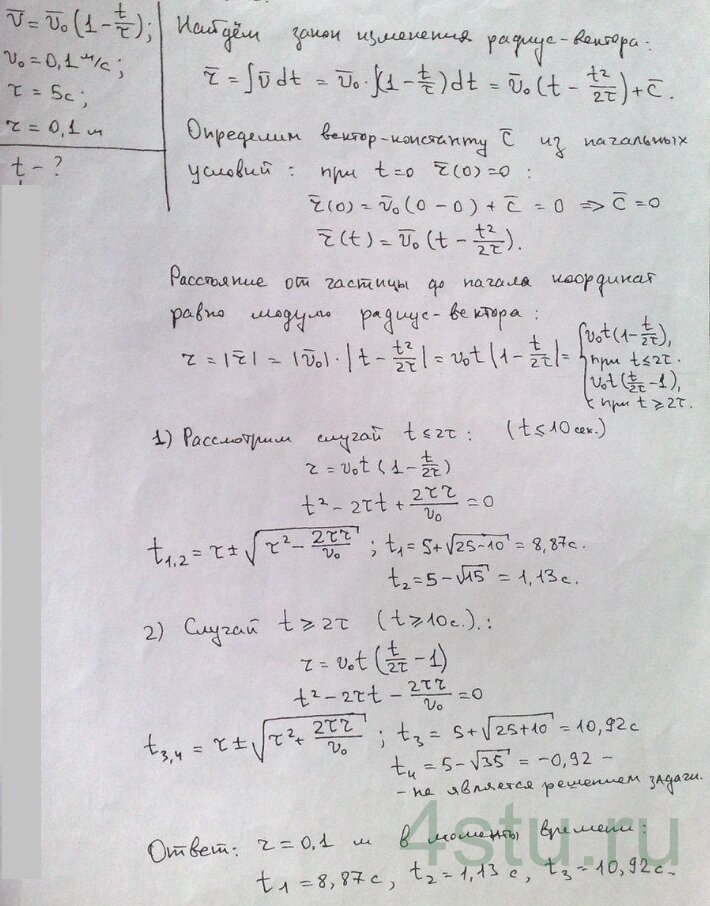 v̄ = v̄₀(1 - t/τ);
v₀ = 0,1 м/с;
τ = 5с;
r = 0,1 м
t - ?
Найдём закон изменения радиус-вектора:
r̄ = ∫v̄dt = v̄₀·∫(1 - t/τ)dt = v̄₀(t - t²/2τ) + c̄.
Определим вектор-константу c̄ из начальных
условий: при t=0 r̄(0)=0:
r̄(0) = v̄₀(0-0) + c̄ = 0 => c̄ = 0
r̄(t) = v̄₀(t - t²/2τ).
Расстояние от частицы до начала координат
равно модулю радиус-вектора:
r = |r̄| = |v̄₀|·|t - t²/2τ| = v₀t|1 - t/2τ| = { v₀t(1 - t/2τ),
при t ≤ 2τ.
v₀t(t/2τ - 1),
при t ≥ 2τ.
1) Рассмотрим случай t ≤ 2τ: (t ≤ 10 сек.)
r = v₀t(1 - t/2τ)
t² - 2τt + 2τr/v₀ = 0
t₁,₂ = τ ± √(τ² - 2τr/v₀); t₁ = 5+√(25-10) = 8,87с.
t₂ = 5-√15 = 1,13с.
2) Случай t ≥ 2τ (t ≥ 10с.).:
r = v₀t(t/2τ - 1)
t² - 2τt - 2τr/v₀ = 0
t₃,₄ = τ ± √(τ² + 2τr/v₀); t₃ = 5+√(25+10) = 10,92с
t₄ = 5-√35 = -0,92 -
- не является решением задачи.
Ответ: r = 0,1 м в моменты времени:
t₁ = 8,87с, t₂ = 1,13с, t₃ = 10,92с.
4stu.ru